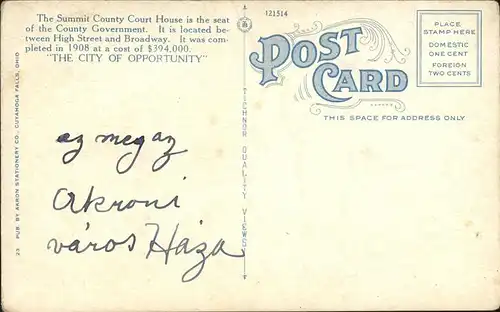 The Summit County Court House is the seat
of the County Government. It is located be-
tween High Street and Broadway. It was com-
pleted in 1908 at a cost of $394,000.
"THE CITY OF OPPORTUNITY"
ez meg az
Akroni
város Háza
23 PUB. BY AKRON STATIONERY CO., CUYAHOGA FALLS, OHIO
TICHNOR QUALITY VIEWS
121514
POST
CARD
THIS SPACE FOR ADDRESS ONLY
PLACE
STAMP HERE
DOMESTIC
ONE CENT
FOREIGN
TWO CENTS